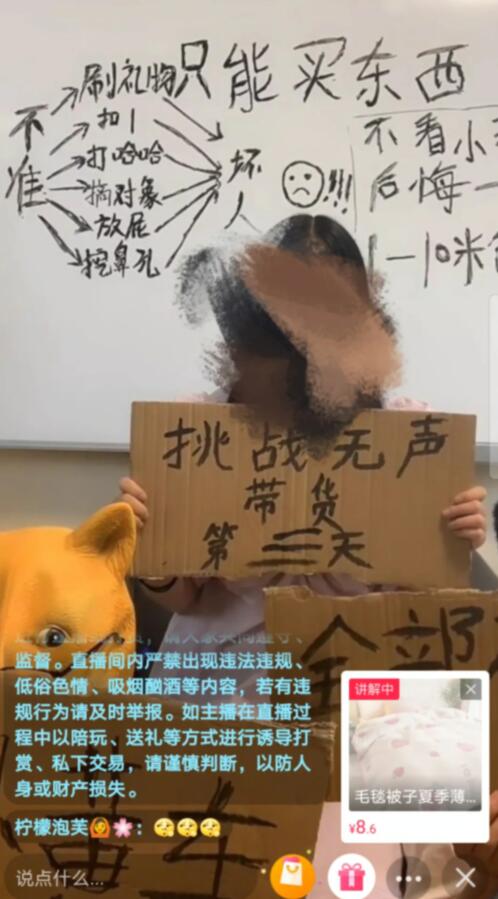 只能买东西
不准
刷礼物
扣1
打哈哈
摘对象
放屁
挖鼻孔
坏人
!!!
不看小
后悔一
1-10米
挑战无声
带货
第三天
全部
监督。直播间内严禁出现违法违规、
低俗色情、吸烟酗酒等内容，若有违
规行为请及时举报。如主播在直播过
程中以陪玩、送礼等方式进行诱导打
赏、私下交易，请谨慎判断，以防人
身或财产损失。
柠檬泡芙🙆🌸：
车
讲解中
毛毯被子夏季薄...
¥8.6
说点什么...